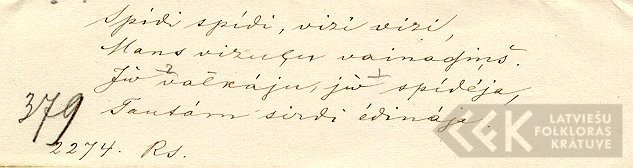 Spídi spídi, vizi vizi,
Mans vizuļu vainadziņš.
Jŵ valkáju, jŵ spídéja,
379
Tautám sirdi édinája.
2274. Rs.
LATVIEŠU
FOLKLORAS
KRĀTUVE